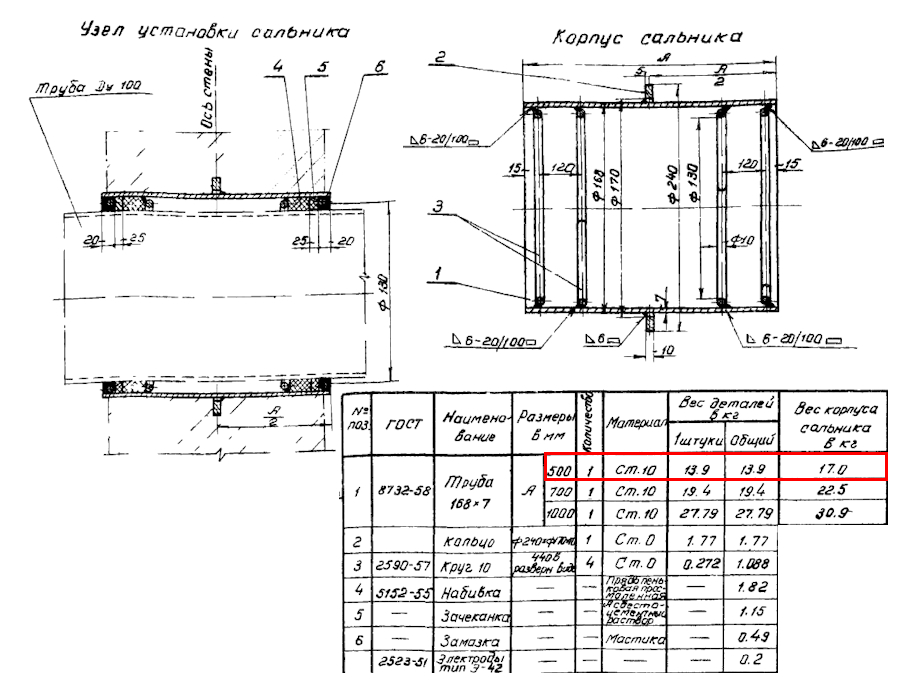 Узел установки сальника
Труба Dy 100
Ось стены
4
5
6
20
25
25
20
ф 130
А
2
Корпус сальника
А
2
5
А
2
6-20/100
6-20/100
15
120
ф 168
ф 170
ф 240
ф 130
120
15
3
ф10
1
7
6-20/100
6
6-20/100
10
№ поз. ГОСТ Наимено-вание Размеры в мм Количество Материал Вес деталей в кг Вес корпуса сальника в кг
1штуки Общий
1 8732-58 Труба 168×7 А 500 1 Ст.10 13.9 13.9 17.0
700 1 Ст.10 19.4 19.4 22.5
1000 1 Ст.10 27.79 27.79 30.9
2 кольцо 1 Ст.0 1.77 1.77
3 2590-57 Круг 10 440 в разверн виде 4 Ст.0 0.272 1.088
4 5152-55 Набивка — — Прядь пень-ковая прос-моленная — 1.82
5 — Зачеканка — — Асбесто-цементный раствор — 1.15
6 — Замазка — — Мастика — 0.49
2523-51 Электроды тип Э-42 — — — — 0.2